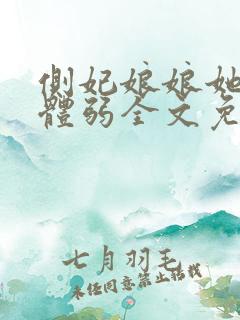 側妃娘娘她
體弱全文免
七月羽毛
未经同意禁止转载